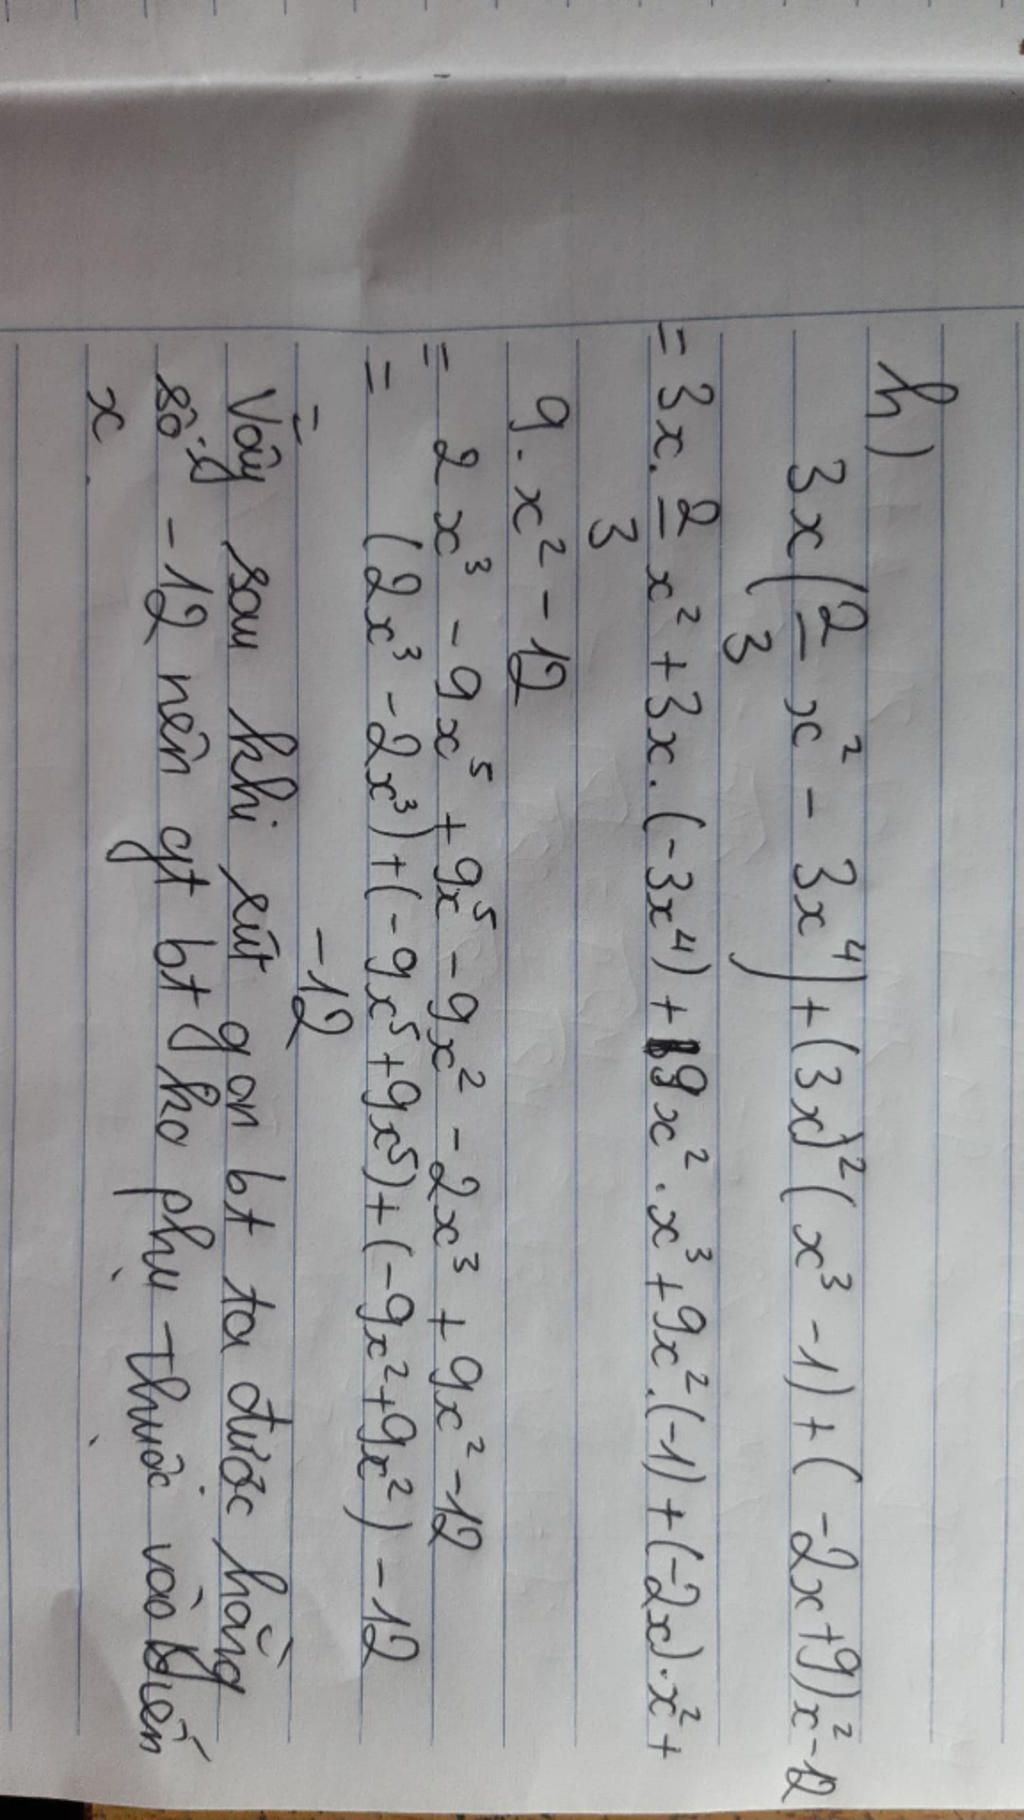 h)
3x(2/3 x² - 3x⁴) + (3x)² (x³ - 1) + (-2x + 9)x² - 12
= 3x. 2/3 x² + 3x. (-3x⁴) + 9x² . x³ + 9x² . (-1) + (-2x) . x² +
9 . x² - 12
= 2x³ - 9x⁵ + 9x⁵ - 9x² - 2x³ + 9x² - 12
= (2x³ - 2x³) + (-9x⁵ + 9x⁵) + (-9x² + 9x²) - 12
= -12
Vậy sau khi rút gọn bt ta được hằng
số -12 nên gt bt kho phụ thuộc vào biến
x.